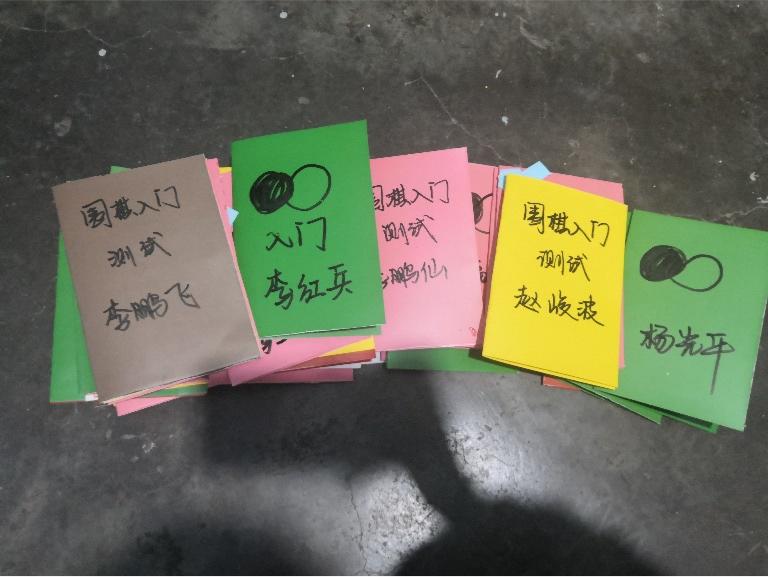 围棋入门
测试
李鹏飞
入门
李红兵
围棋入门
测试
李鹏仙
围棋入门
测试
赵峻波
杨光平